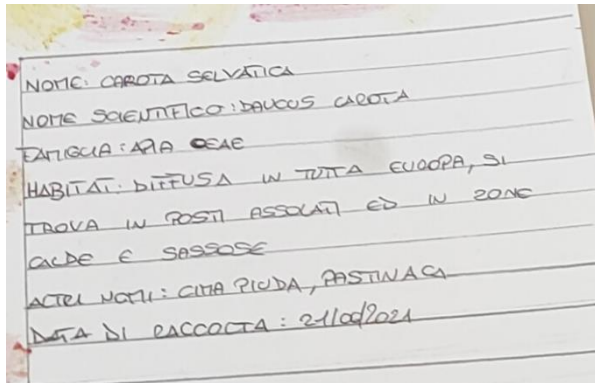 NOME: CAROTA SELVATICA
NOME SCIENTIFICO: DAUCUS CAROTA
FAMIGLIA: APIACEAE
HABITAT: DIFFUSA IN TUTTA EUROPA, SI
TROVA IN POSTI ASSOLATI ED IN ZONE
CALDE E SASSOSE
ALTRI NOMI: CIMA PIUDA, PASTINACA
DATA DI RACCOLTA: 21/06/2021